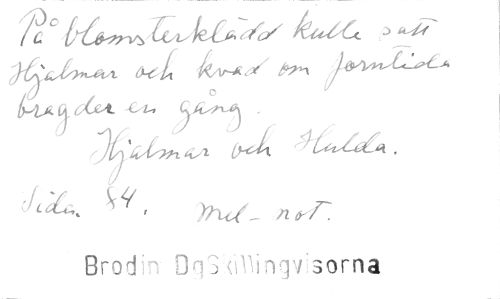 På blomsterklädd kulle satt
Hjalmar och kvad om forntida
bragder en gång.
Hjalmar och Hulda.
Sidan 84. mel-not.
Brodin DgSkillingvisorna